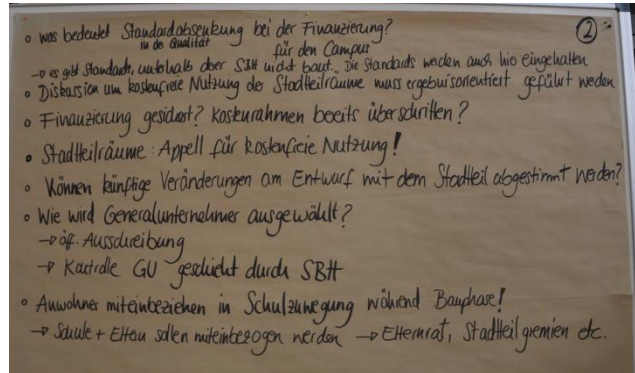 ②
o was bedeutet Standardabsenkung bei der Finanzierung?
in der Qualität für den Campus
→ es gibt Standards, unterhalb derer SBH nicht baut. Die Standards werden auch hier eingehalten
o Diskussion um kostenfreie Nutzung der Stadtteilräume muss ergebnisorientiert geführt werden
o Finanzierung gesichert? Kostenrahmen bereits überschritten?
• Stadtteilräume: Appell für kostenfreie Nutzung!
o Können künftige Veränderungen am Entwurf mit dem Stadtteil abgestimmt werden?
o Wie wird Generalunternehmer ausgewählt?
→ öff. Ausschreibung
→ Kontrolle GU geschieht durch SBH
o Anwohner miteinbeziehen in Schulzuwegung während Bauphase!
→ Schule + Eltern sollen miteinbezogen werden → Elternrat, Stadtteilgremien etc.